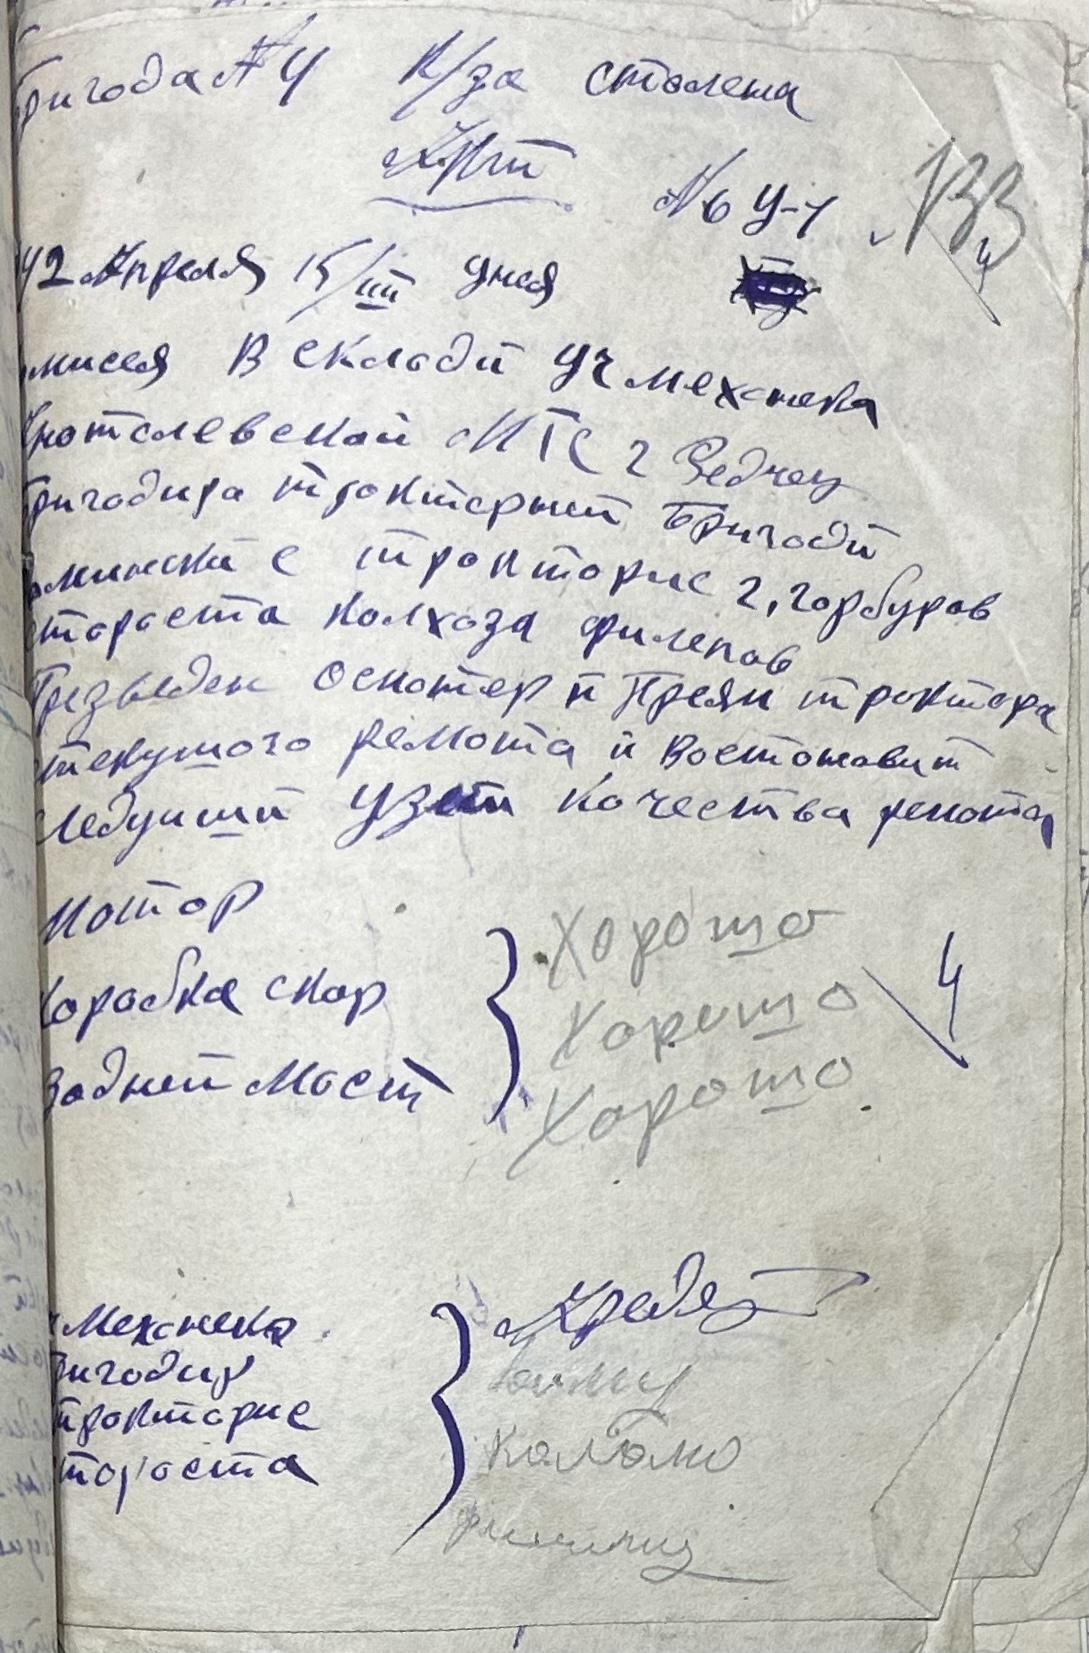 Бригода № 4 К/за сталена
Акт
№ 6 У-1
133
42 Апреля 15/III дня
мисея В склади уч механека
МТС г
Бригодира трактерний Бригоди
с тракторис г, горбуров
стороста колхоза филепов
Презведен осмотер и Преян трактора
стекушого ремота и востоновит
следуиший узел качества ремота
Мотор
Коробка скор
Задний мост
Хорошо
Хорошо
Хорошо
4
механека
Бригодир
тракторис
стороста